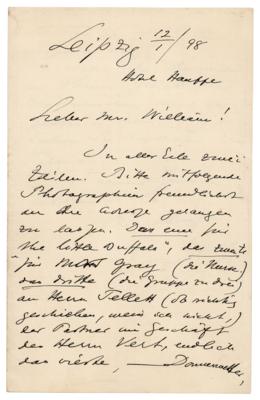 Leipzig 12/1/98
Hotel Hauffe
Lieber Mr. William!
In aller Eile zwei
Zeilen. Bitte mitfolgende
Photographien freundlichst
an ihre Adresse gelangen
zu lassen. Das eine für
the little Duffels", das zweite
"für Gray (die Nurse)
das dritte (die Gruppe zu drei)
an Herrn Tellett (Ob richtig
geschrieben, weiss ich nicht,)
der Partner im Geschäft
des Herrn Vert, endlich
das vierte, — Donnerwetter,